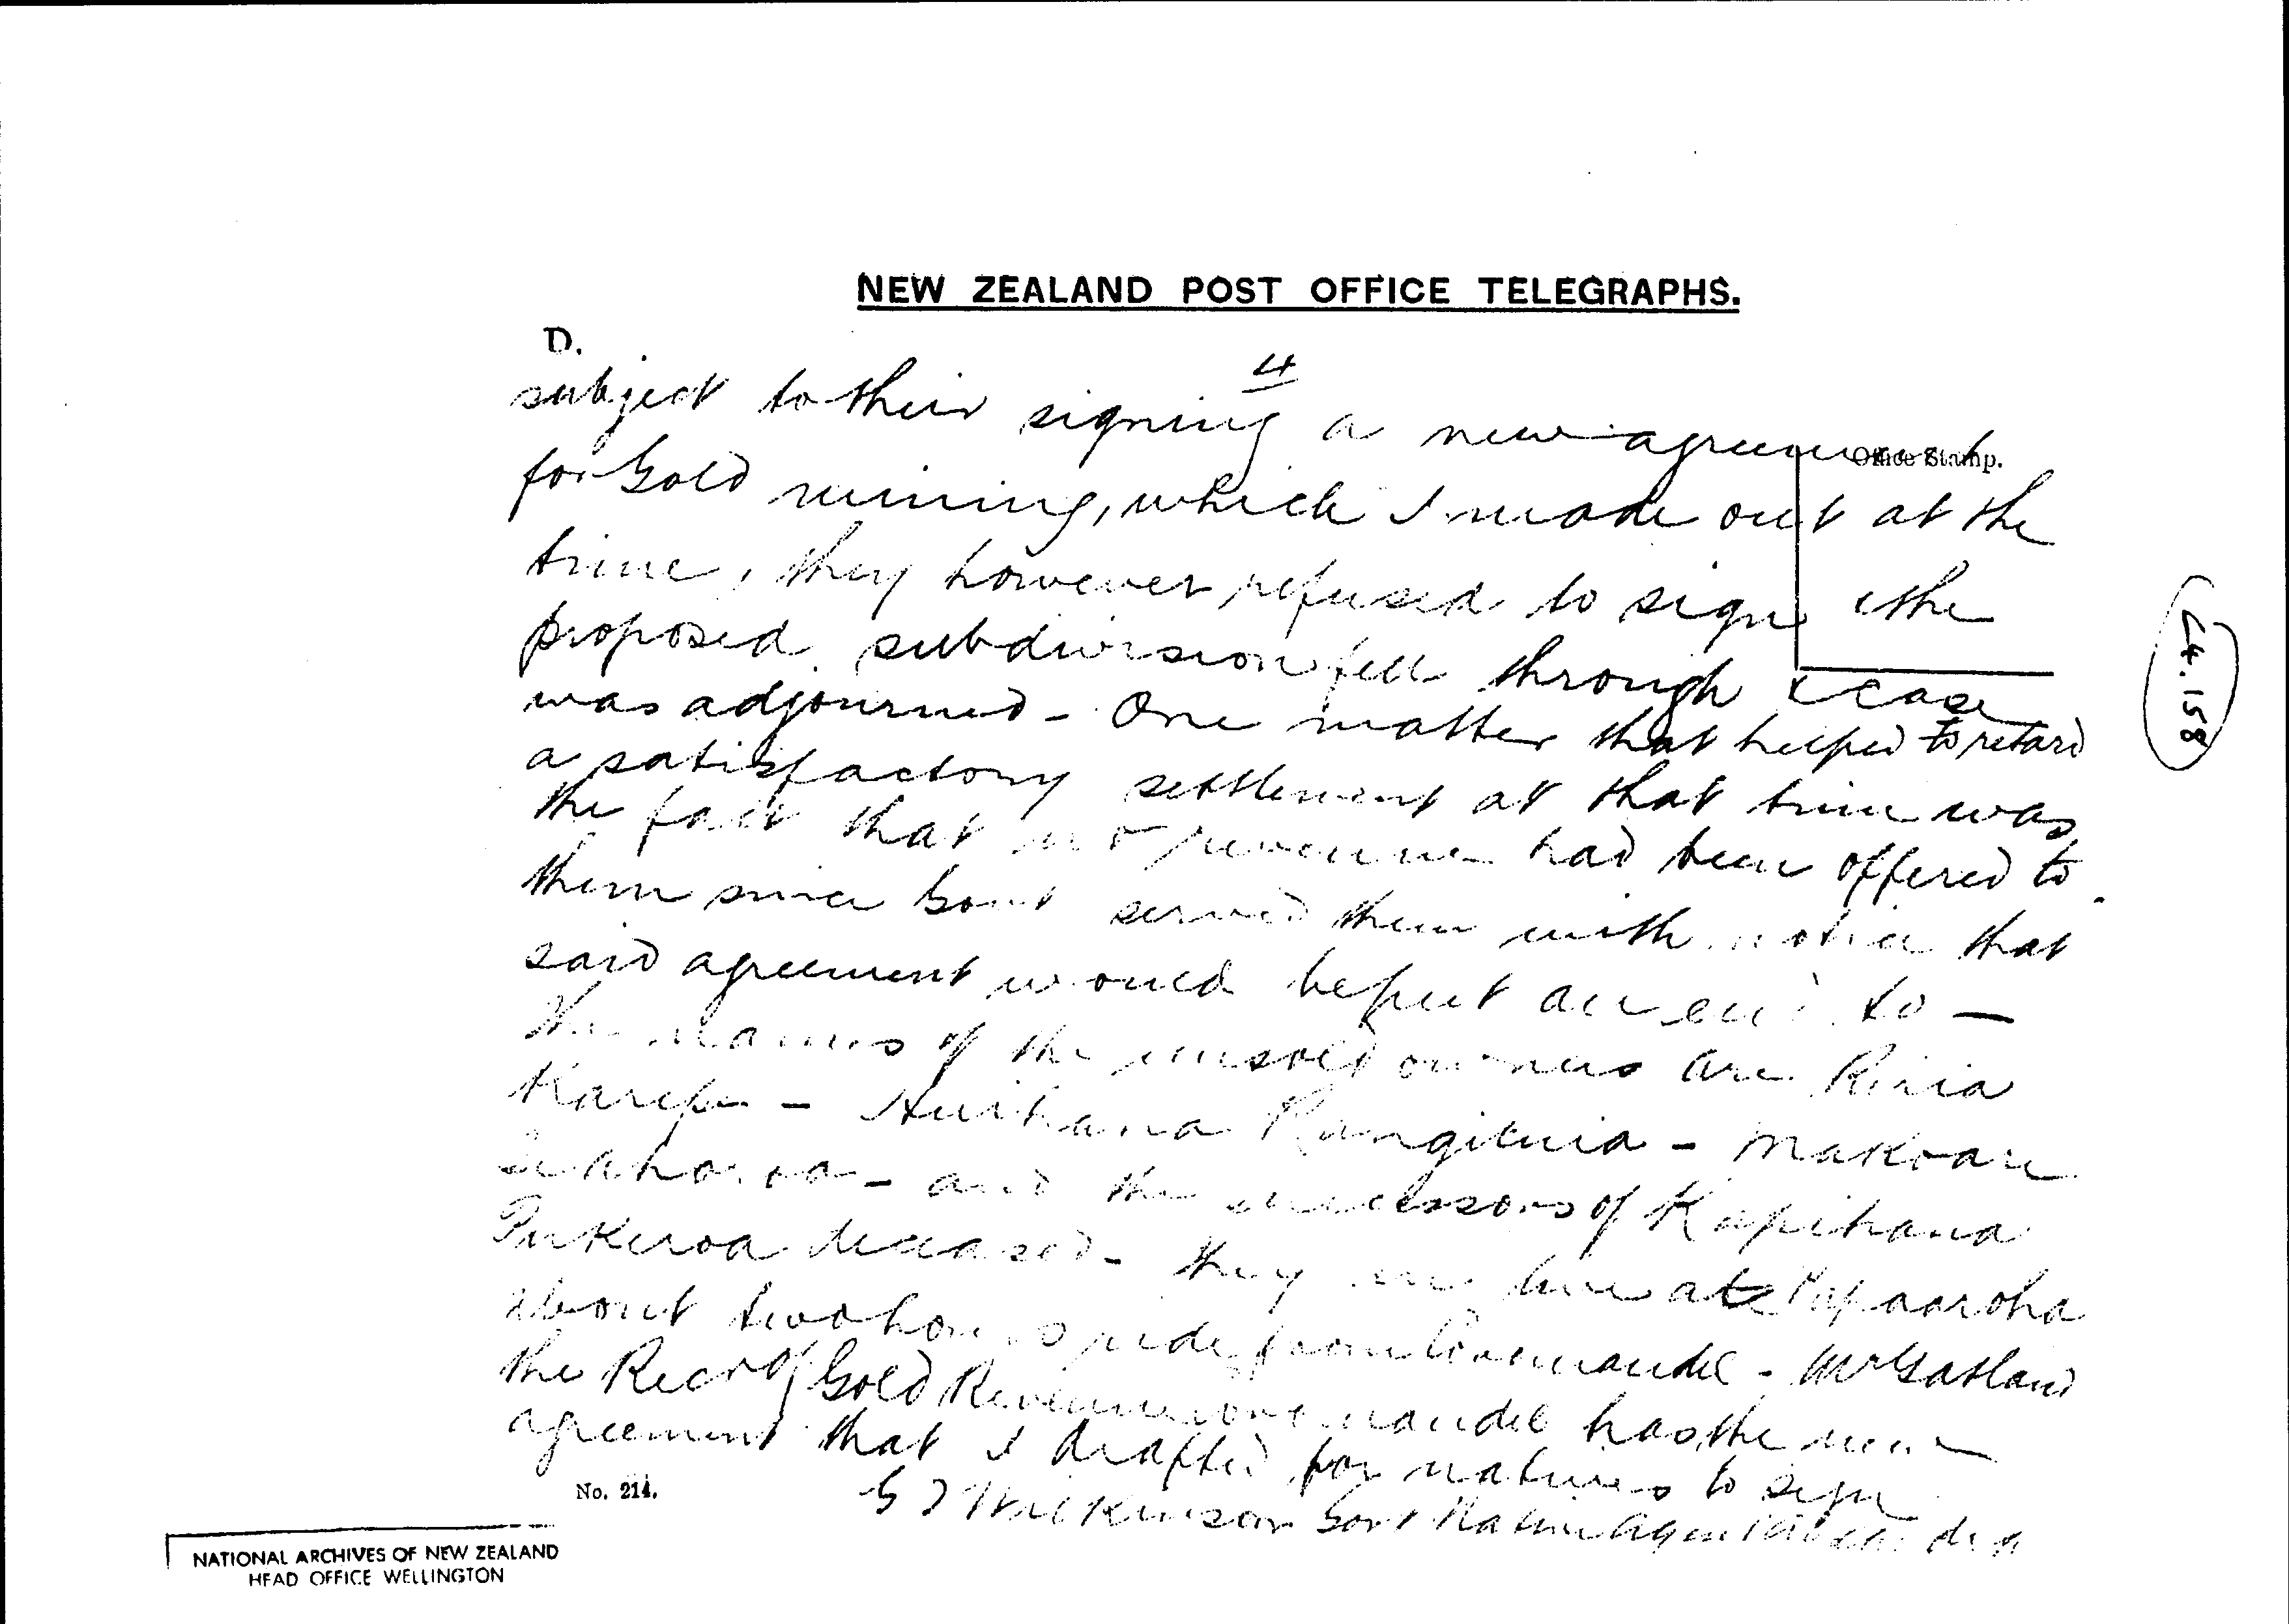 NEW ZEALAND POST OFFICE TELEGRAPHS.
D.
4
Office Stamp.
subject to their signing a new agreement
for Gold mining, which I made out at the
time, they however refused to sign & the
proposed subdivision fell through & case
was adjourned - One matter that helped to retard
a satisfactory settlement at that time was
the fact that no revenue had been offered to
them since Govt served them with notice that
said agreement would be put an end to -
The names of the unsold owners are Riria
Karepe - Hurihana Rangituia - Makoare
and the successors of Kapihana
Pukeroa deceased - they live at Papaaroha
about two hours ride from Coromandel - Mr Gatland
the Recr of Gold Revenue Coromandel has the new
agreement that I drafted for natives to sign
G J Wilkinson Govt Native Agent
No. 214.
24.158
NATIONAL ARCHIVES OF NEW ZEALAND
HEAD OFFICE WELLINGTON